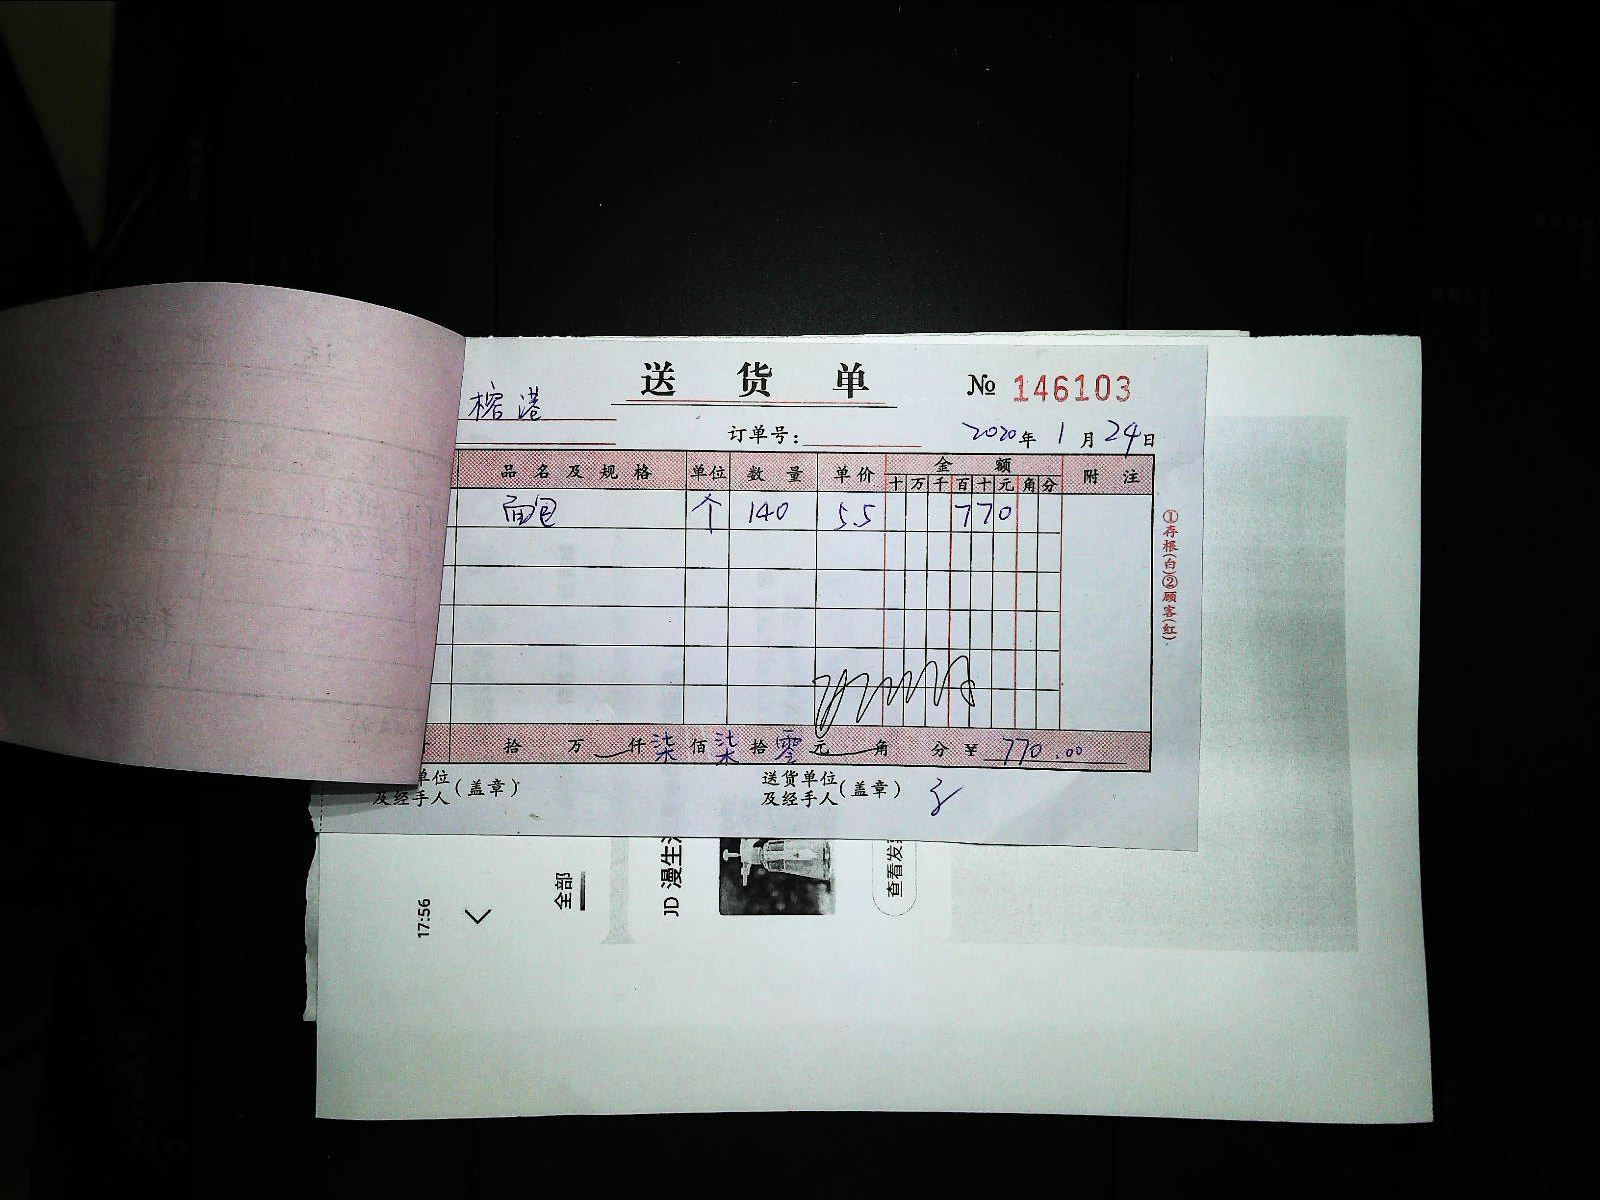 送货单
№ 146103
榕港
订单号：
2020年1月24日
品名及规格 单位 数量 单价 金额 附注
十万千百十元角分
面包 个 140 5.5 770
①存根(白)②顾客(红)
拾 万 仟 柒 佰 柒 拾 零 元 角 分 ¥ 770.00
单位
及经手人(盖章)
送货单位
及经手人(盖章)
17:56
全部
JD 漫生
查看发